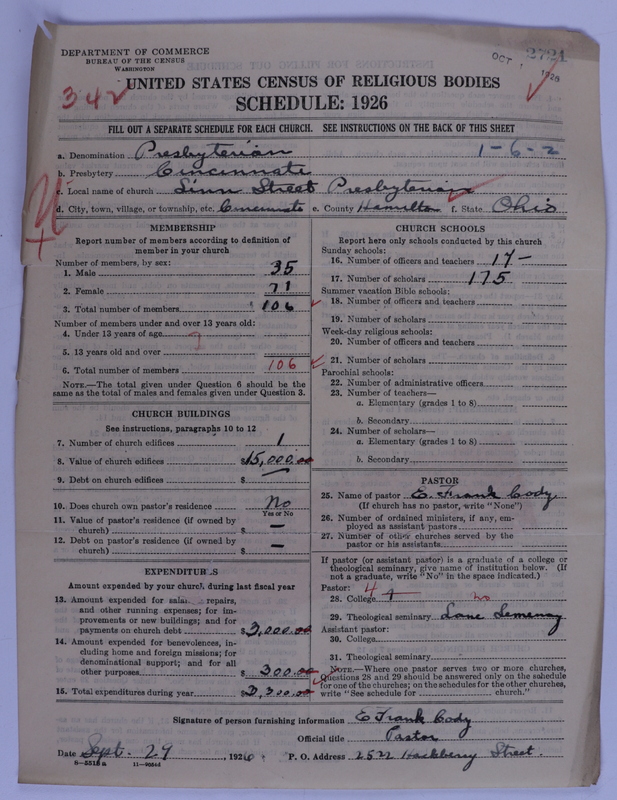 DEPARTMENT OF COMMERCE
BUREAU OF THE CENSUS
WASHINGTON
2721
OCT 1926
342
UNITED STATES CENSUS OF RELIGIOUS BODIES
SCHEDULE: 1926
FILL OUT A SEPARATE SCHEDULE FOR EACH CHURCH. SEE INSTRUCTIONS ON THE BACK OF THIS SHEET
a. Denomination Presbyterian 1-6-2
b. Presbytery Cincinnati
c. Local name of church Linn Street Presbyterian
d. City, town, village, or township, etc. Cincinnati e. County Hamilton f. State Ohio
MEMBERSHIP
Report number of members according to definition of
member in your church
Number of members, by sex:
1. Male 35
2. Female 71
3. Total number of members 106
Number of members under and over 13 years old:
4. Under 13 years of age
5. 13 years old and over
6. Total number of members 106
NOTE.—The total given under Question 6 should be the
same as the total of males and females given under Question 3.
CHURCH BUILDINGS
See instructions, paragraphs 10 to 12
7. Number of church edifices 1
8. Value of church edifices $15,000.00
9. Debt on church edifices $
10. Does church own pastor's residence No
Yes or No
11. Value of pastor's residence (if owned by
church) $ —
12. Debt on pastor's residence (if owned by
church) $ —
EXPENDITURES
Amount expended by your church during last fiscal year
13. Amount expended for salaries, repairs,
and other running expenses; for im-
provements or new buildings; and for
payments on church debt $3,000.00
14. Amount expended for benevolences, in-
cluding home and foreign missions; for
denominational support; and for all
other purposes $300.00
15. Total expenditures during year $3,300.00
CHURCH SCHOOLS
Report here only schools conducted by this church
Sunday schools:
16. Number of officers and teachers 17-
17. Number of scholars 175
Summer vacation Bible schools:
18. Number of officers and teachers
19. Number of scholars
Week-day religious schools:
20. Number of officers and teachers
21. Number of scholars
Parochial schools:
22. Number of administrative officers
23. Number of teachers—
a. Elementary (grades 1 to 8)
b. Secondary
24. Number of scholars—
a. Elementary (grades 1 to 8)
b. Secondary
PASTOR
25. Name of pastor E. Frank Cody
(If church has no pastor, write "None")
26. Number of ordained ministers, if any, em-
ployed as assistant pastors
27. Number of other churches served by the
pastor or his assistants
If pastor (or assistant pastor) is a graduate of a college or
theological seminary, give name of institution below. (If
not a graduate, write "No" in the space indicated.)
Pastor:
28. College no
29. Theological seminary Lane Semenay
Assistant pastor:
30. College
31. Theological seminary
NOTE.—Where one pastor serves two or more churches,
Questions 28 and 29 should be answered only on the schedule
for one of the churches; on the schedules for the other churches,
write "See schedule for church."
Signature of person furnishing information E Frank Cody
Official title Pastor
Date Sept. 27, 1926 P. O. Address 2522 Hackberry Street.
8-5513a 11-9056d